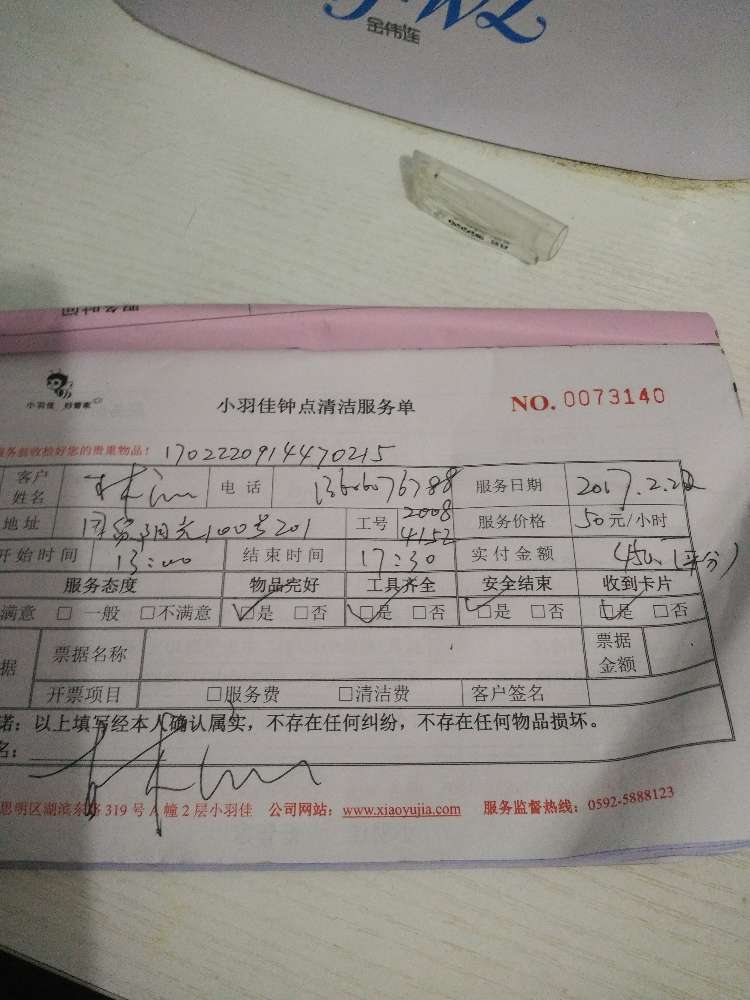 金伟连
服务时间
小羽佳 妙管家
小羽佳钟点清洁服务单
NO. 0073140
务前收检好您的贵重物品！
1702220914470215
客户姓名 林 电话 服务日期 2017.2.22
地址 国贸阳光100号201 工号 2008 4152 服务价格 50元/小时
开始时间 13:00 结束时间 17:30 实付金额 450 (平分)
服务态度 物品完好 工具齐全 安全结束 收到卡片
满意 □ 一般 □不满意 □是 □否 □是 □否 □是 □否 □是 □否
据 票据名称 票据金额
开票项目 □服务费 □清洁费 客户签名
诺：以上填写经本人确认属实，不存在任何纠纷，不存在任何物品损坏。
名：林
思明区湖滨东路319号A幢2层小羽佳 公司网站：www.xiaoyujia.com 服务监督热线：0592-5888123